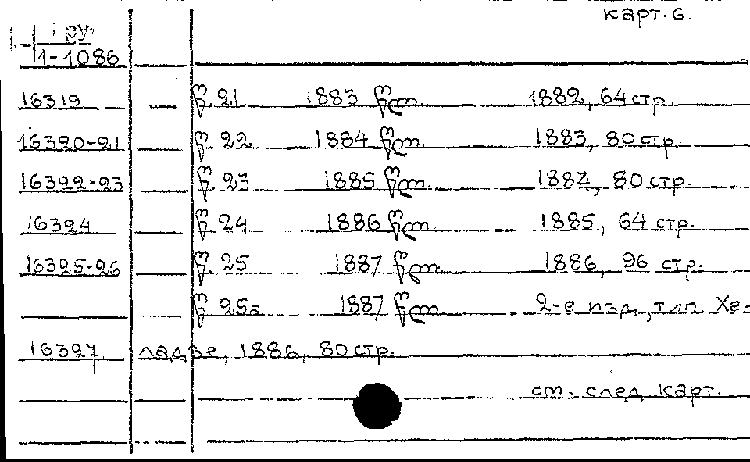 карт. 6.
1 гру.
1-1086
16319 — წ. 21 1883 წლ. 1882, 64 стр.
16320-21 წ. 22 1884 წლ. 1883, 80 стр.
16322-23 წ. 23 1885 წლ. 1884, 80 стр.
16324 წ. 24 1886 წლ. 1885, 64 стр.
16325-26 წ. 25 1887 წლ. 1886, 96 стр.
წ. 25а 1887 წლ. 2-е изд., тип Хе-
16327 ладзе, 1886, 80 стр.
см. след карт.